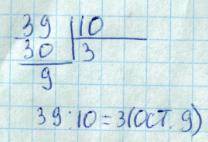 39 10
30 3
9
39:10=3(ОСТ. 9)